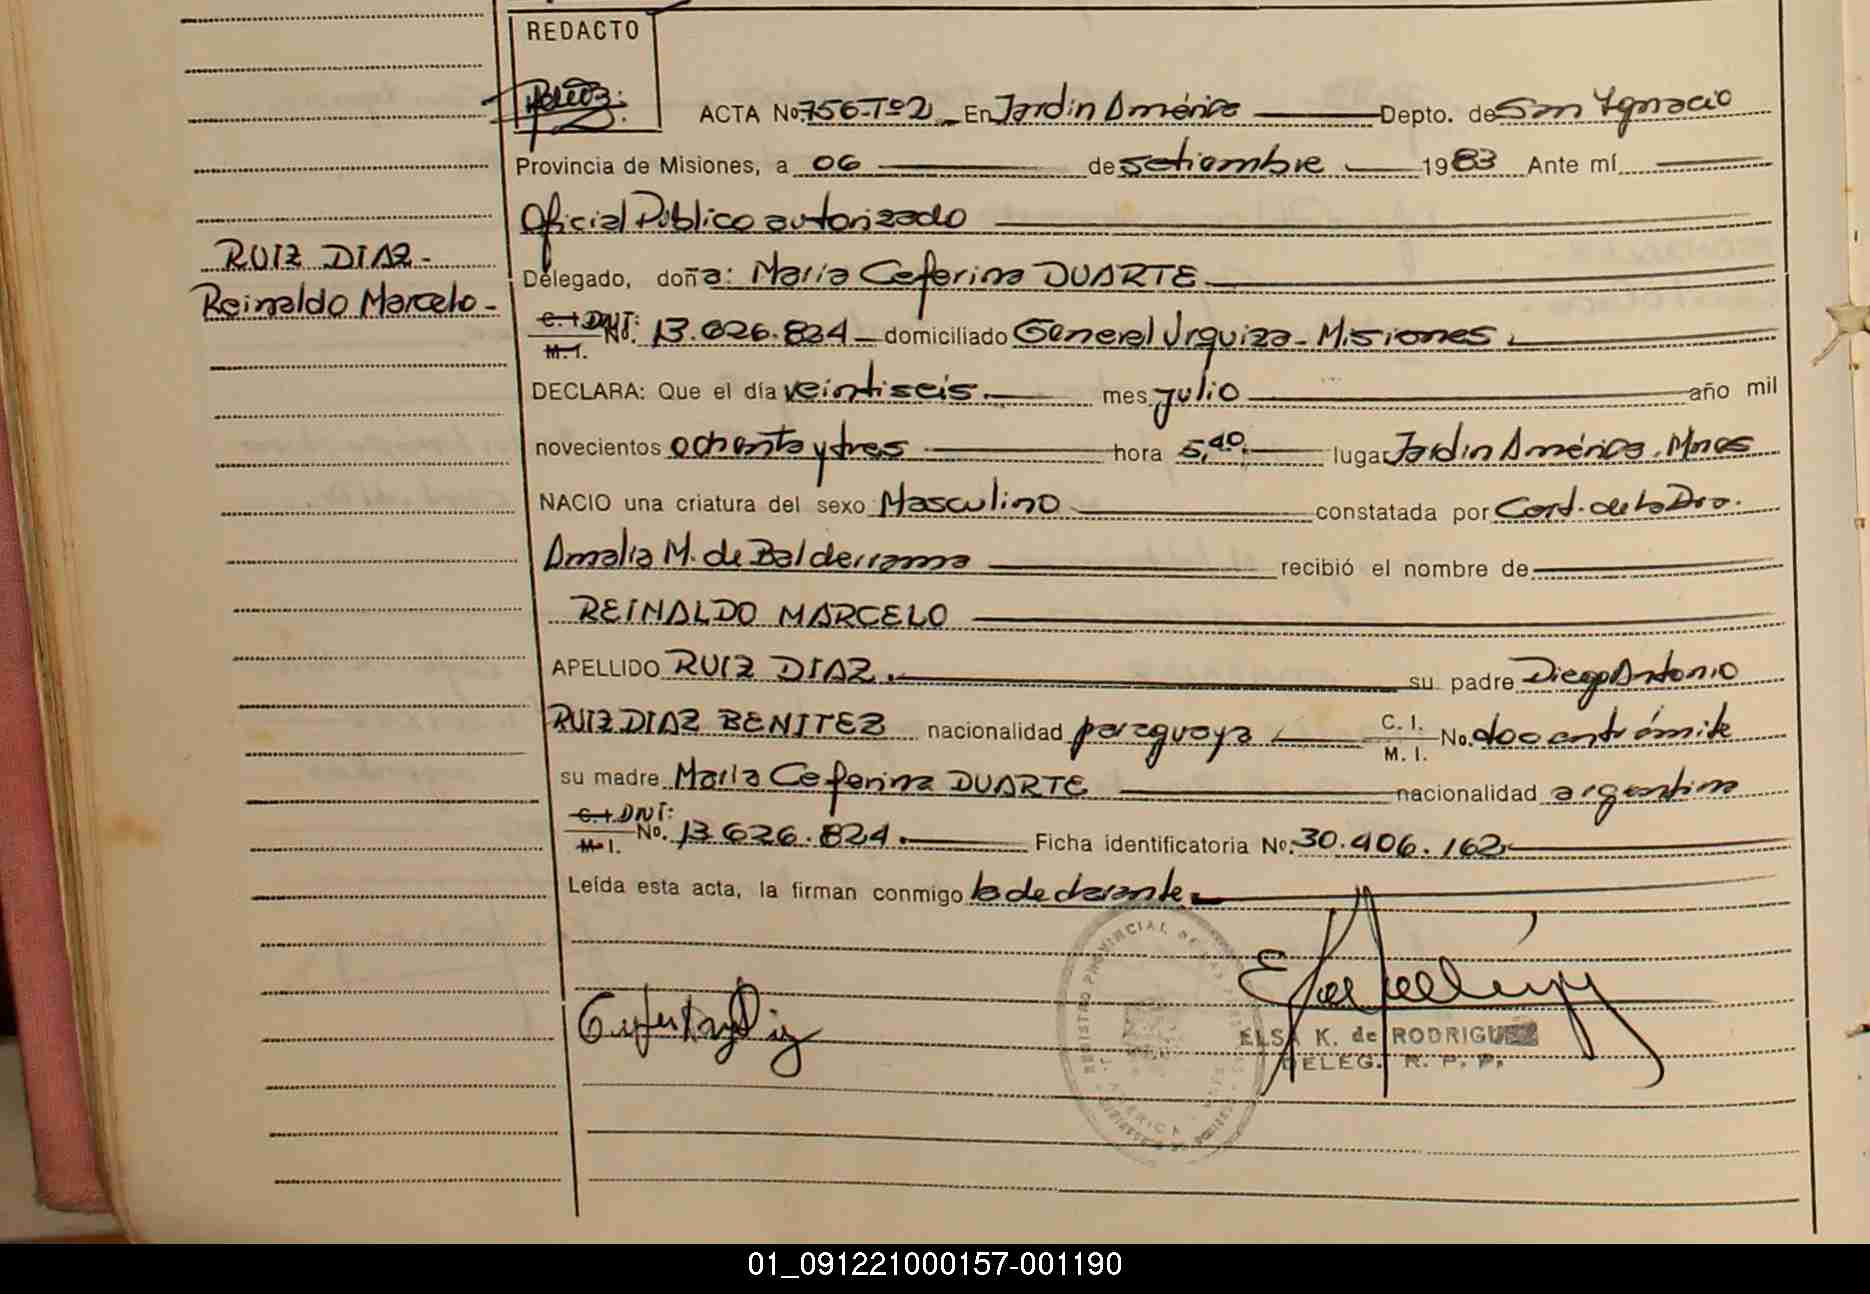 REDACTO
ACTA No. 756-Tº2 En Jardin América Depto. de San Ignacio
Provincia de Misiones, a 06 de setiembre 1983 Ante mí
Oficial Público autorizado
RUIZ DIAZ-
Delegado, doña: Maria Ceferina DUARTE
Reinaldo Marcelo-
C. I. DNI: M. I. No. 13.626.824 domiciliado General Urquiza - Misiones
DECLARA: Que el día veintiseis mes julio año mil
novecientos ochenta y tres hora 5,40 lugar Jardin América. Mnes
NACIO una criatura del sexo Masculino constatada por Cert. de la Dra.
Amalia M. de Balderrama recibió el nombre de
REINALDO MARCELO
APELLIDO RUIZ DIAZ su padre Diego Antonio
RUIZ DIAZ BENITEZ nacionalidad paraguaya C. I. M. I. No. doc en trámite
su madre Maria Ceferina DUARTE nacionalidad argentina
C. I. DNI: M. I. No. 13.626.824 Ficha identificatoria No. 30.406.162
Leída esta acta, la firman conmigo la declarante
REGISTRO PROVINCIAL DE LAS PERSONAS
J. AMERICA
ELSA K. de RODRIGUEZ
DELEG. R. P. P.
01_091221000157-001190